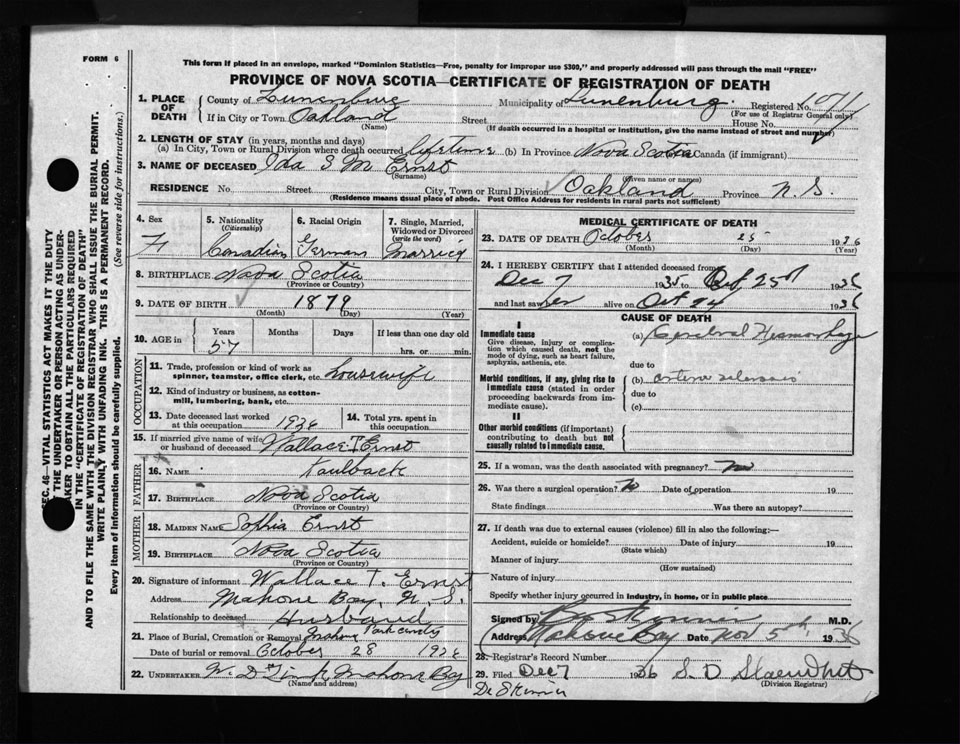 FORM 6
This form if placed in an envelope, marked "Dominion Statistics—Free, penalty for improper use $300," and properly addressed will pass through the mail "FREE"
PROVINCE OF NOVA SCOTIA—CERTIFICATE OF REGISTRATION OF DEATH
1. PLACE OF DEATH
County of Lunenburg Municipality of Lunenburg Registered No. 1011
(For use of Registrar General only)
If in City or Town Oakland Street House No.
(Name) (If death occurred in a hospital or institution, give the name instead of street and number)
2. LENGTH OF STAY (in years, months and days)
(a) In City, Town or Rural Division where death occurred lifetime (b) In Province Nova Scotia Canada (if immigrant)
3. NAME OF DECEASED Ida S M Ernst
(Surname) (Given name or names)
RESIDENCE No. Street City, Town or Rural Division Oakland Province N. S.
(Residence means usual place of abode. Post Office Address for residents in rural parts not sufficient)
4. Sex 5. Nationality (Citizenship) 6. Racial Origin 7. Single, Married, Widowed or Divorced (write the word)
F Canadian German Married
8. BIRTHPLACE Nova Scotia
(Province or Country)
9. DATE OF BIRTH 1879
(Month) (Day) (Year)
10. AGE in Years Months Days If less than one day old
57 hrs. or min.
OCCUPATION
11. Trade, profession or kind of work as spinner, teamster, office clerk, etc. Housewife
12. Kind of industry or business, as cotton-mill, lumbering, bank, etc.
13. Date deceased last worked at this occupation 1936 14. Total yrs. spent in this occupation
15. If married give name of wife or husband of deceased Wallace T Ernst
FATHER
16. NAME Kaulback
17. BIRTHPLACE Nova Scotia
(Province or Country)
MOTHER
18. MAIDEN NAME Sophia Ernst
19. BIRTHPLACE Nova Scotia
(Province or Country)
20. Signature of informant Wallace T. Ernst
Address Mahone Bay, N. S.
Relationship to deceased Husband
21. Place of Burial, Cremation or Removal Mahone Park
Date of burial or removal October 28 1936
22. UNDERTAKER W. D. Mahone Bay
(Name and address)
MEDICAL CERTIFICATE OF DEATH
23. DATE OF DEATH October 25 1936
(Month) (Day) (Year)
24. I HEREBY CERTIFY that I attended deceased from
Dec 7 1935 to Oct 25 1936
and last saw her alive on Oct 24 1936
CAUSE OF DEATH
I
Immediate cause
Give disease, injury or complication which caused death, not the mode of dying, such as heart failure, asphyxia, asthenia, etc.
(a) Cerebral Hemorrhage
due to
Morbid conditions, if any, giving rise to immediate cause (stated in order proceeding backwards from immediate cause).
(b) arterio sclerosis
due to
(c)
II
Other morbid conditions (if important) contributing to death but not causally related to immediate cause.
25. If a woman, was the death associated with pregnancy? no
26. Was there a surgical operation? No Date of operation 19
State findings Was there an autopsy?
27. If death was due to external causes (violence) fill in also the following:—
Accident, suicide or homicide? Date of injury 19
(State which)
Manner of injury
(How sustained)
Nature of injury
Specify whether injury occurred in industry, in home, or in public place
Signed by M.D.
Address Mahone Bay Date Nov 5th, 1936
28. Registrar's Record Number
29. Filed Dec 7 1936 S. D
(Division Registrar)
Dr Skinner
SEC. 46—VITAL STATISTICS ACT MAKES IT THE DUTY
OF THE UNDERTAKER OR PERSON ACTING AS UNDER-
TAKER TO OBTAIN ALL THE PARTICULARS REQUIRED
IN THE "CERTIFICATE OF REGISTRATION OF DEATH"
AND TO FILE THE SAME WITH THE DIVISION REGISTRAR WHO SHALL ISSUE THE BURIAL PERMIT.
WRITE PLAINLY WITH UNFADING INK. THIS IS A PERMANENT RECORD.
Every item of information should be carefully supplied. (See reverse side for instructions.)